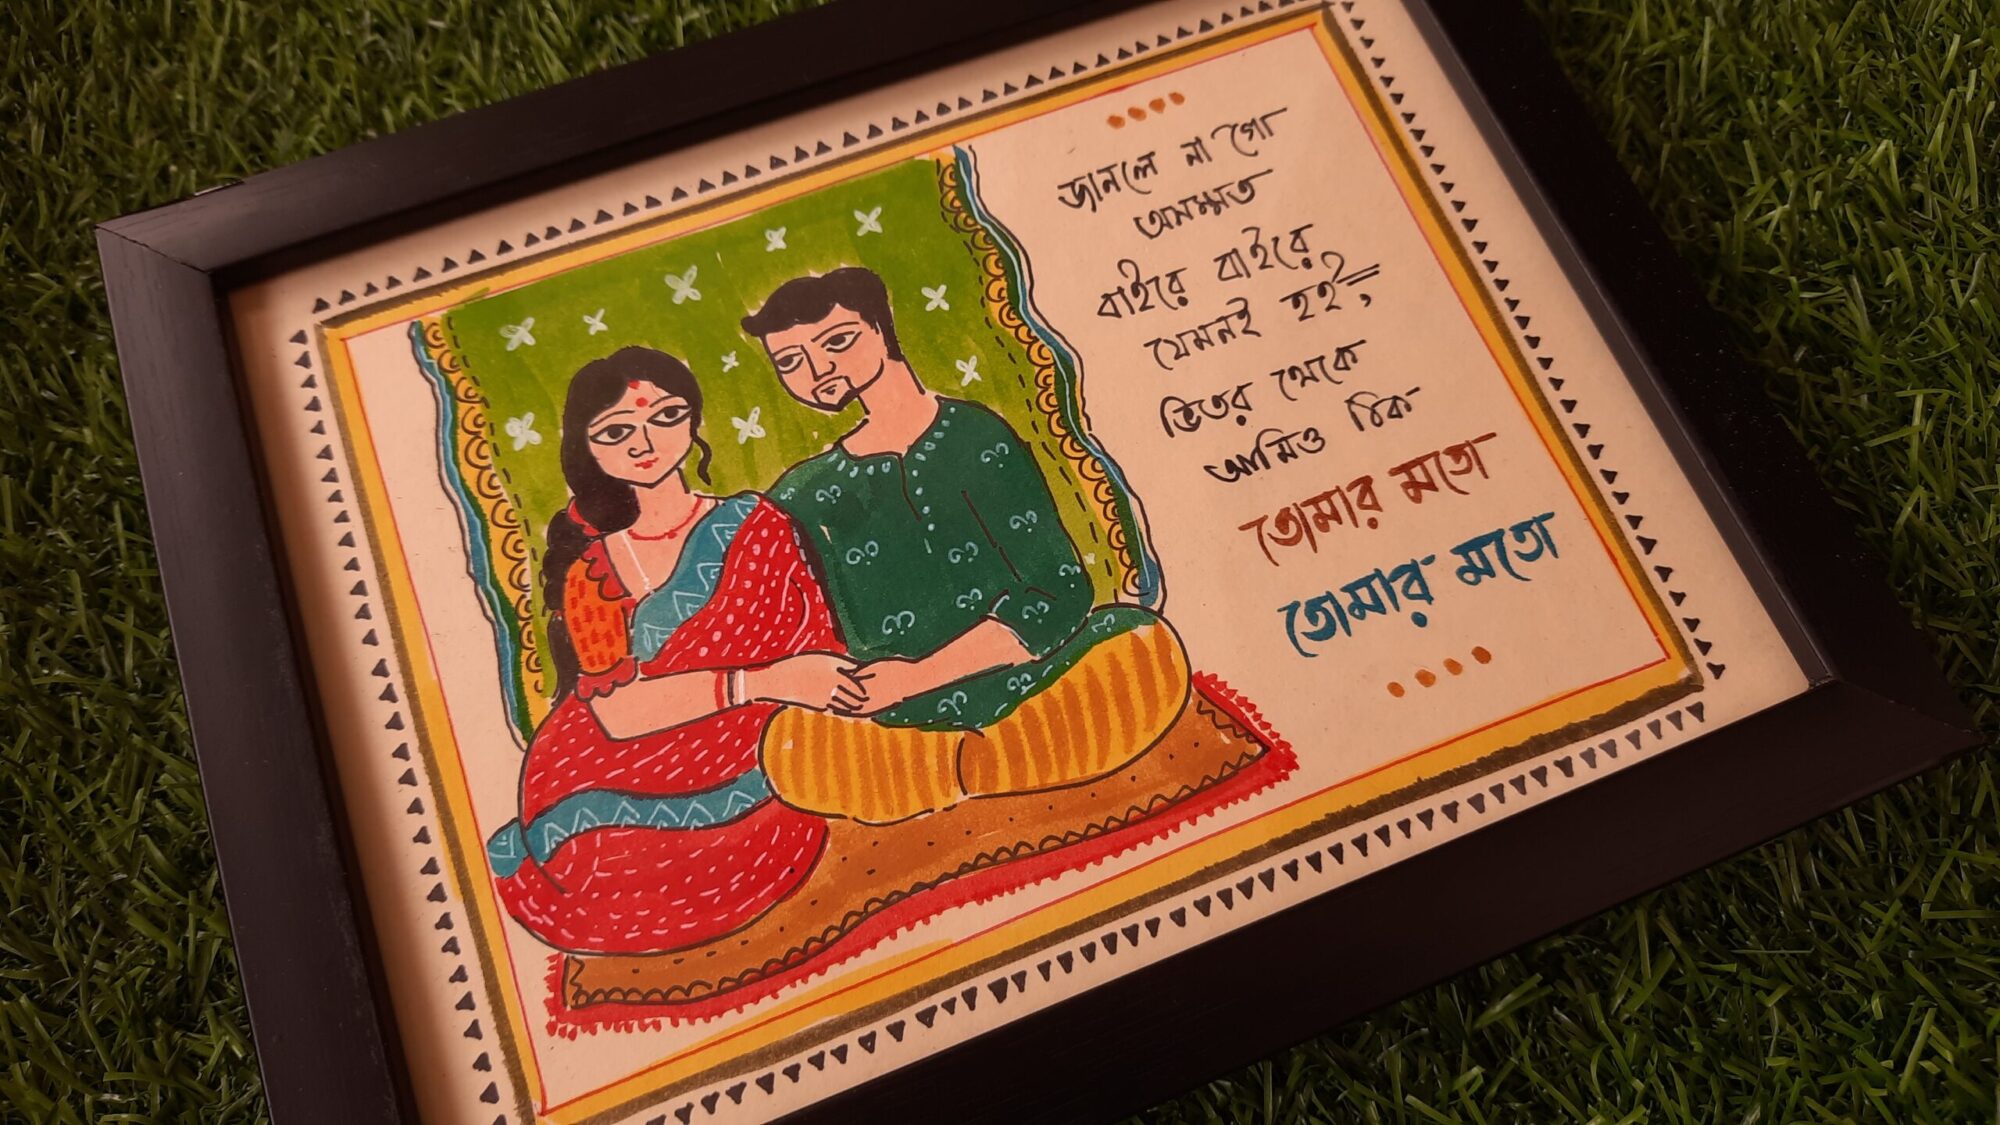 জানলে না গো
অসম্মত
বাইরে বাইরে
যেমনই হই,
ভিতর থেকে
আমিও ঠিক
তোমার মতো
তোমার মতো